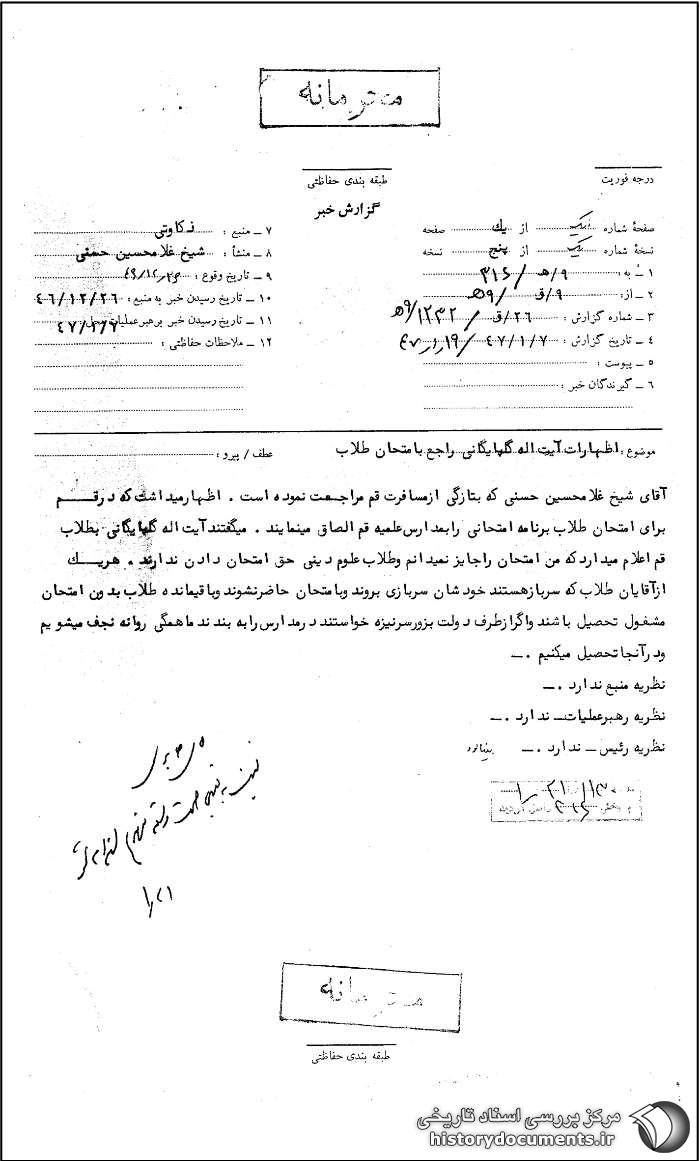 محرمانه
درجه فوریت
طبقه بندی حفاظتی
گزارش خبر
صفحهٔ شماره یک از یك صفحه
نسخهٔ شماره یک از پنج نسخه
۱ ــ به : ۹/هـ/ ۳۱۶
۲ ــ از : ۹/ق/ ۹هـ
۳ ــ شماره گزارش : ۲۶/ق/ ۹/۱۲۳۲هـ
۴ ــ تاریخ گزارش : ۴۷/۱/۷
۵ ــ پیوست :
۶ ــ گیرندگان خبر :
۷ ــ منبع :
۸ ــ منشأ : شیخ غلامحسین حسنی
۹ ــ تاریخ وقوع :
۱۰ ــ تاریخ رسیدن خبر به منبع : ۴۶/۱۲/۲۶
۱۱ ــ تاریخ رسیدن خبر برهبر عملیات محل ۴۷/۱/۶
۱۲ ــ ملاحظات حفاظتی :
موضوع : اظهارات آیت اله گلپایگانی راجع بامتحان طلاب
عطف / پیرو :
آقای شیخ غلامحسین حسنی که بتازگی ازمسافرت قم مراجعت نموده است . اظهارمیداشت که درقم
برای امتحان طلاب برنامه امتحانی رابمدارس علمیه قم الصاق مینمایند . میگفتند آیت اله گلپایگانی بطلاب
قم اعلام میدارد که من امتحان راجایز نمیدانم وطلاب علوم دینی حق امتحان دادن ندارند . هریك
ازآقایان طلاب که سربازهستند خودشان سربازی بروند وبامتحان حاضرنشوند وباقیمانده طلاب بدون امتحان
مشغول تحصیل باشند واگرازطرف دولت بزورسرنیزه خواستند درمدارس رابه بندند ماهمگی روانه نجف میشویم
ودرآنجا تحصیل میکنیم . ــ
نظریه منبع ندارد . ــ
نظریه رهبرعملیات ــ ندارد . ــ
نظریه رئیس ــ ندارد . ــ
محرمانه
طبقه بندی حفاظتی
مرکز بررسی اسناد تاریخی
historydocuments.ir